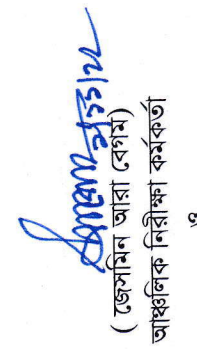 ( জেসমিন আরা বেগম)
আঞ্চলিক নিরীক্ষা কর্মকর্তা
ও